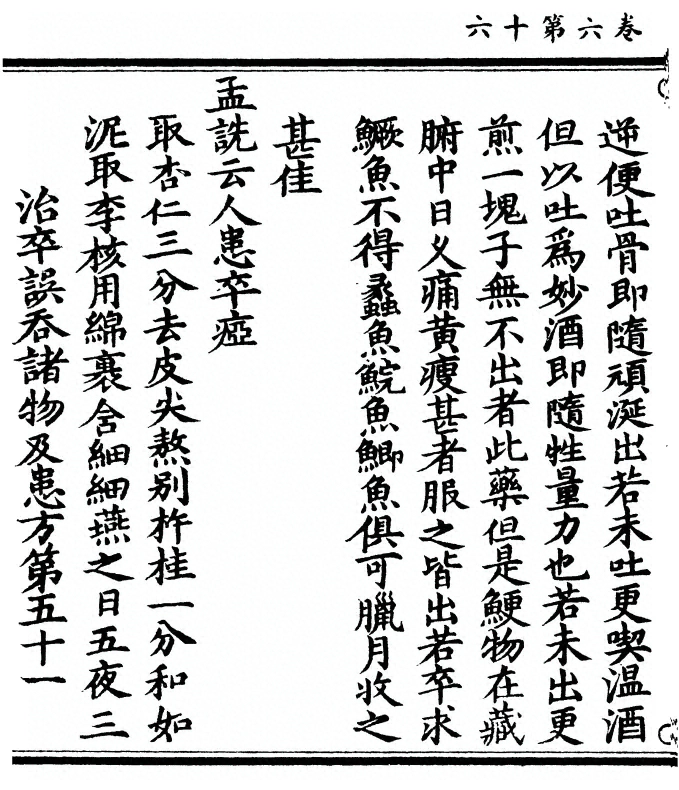 卷六第十六
逆便吐骨即隨頑涎出若未吐更喫温酒
但以吐爲妙酒即隨性量力也若未出更
煎一塊子無不出者此藥但是鯁物在藏
腑中日乂痛黄瘦甚者服之皆出若卒求
鱖魚不得蠡魚鯇魚鯽魚俱可臘月收之
甚佳
孟詵云人患卒瘂
取杏仁三分去皮尖熬别杵桂一分和如
泥取李核用綿裹含細細嚥之日五夜三
治卒誤吞諸物及患方第五十一